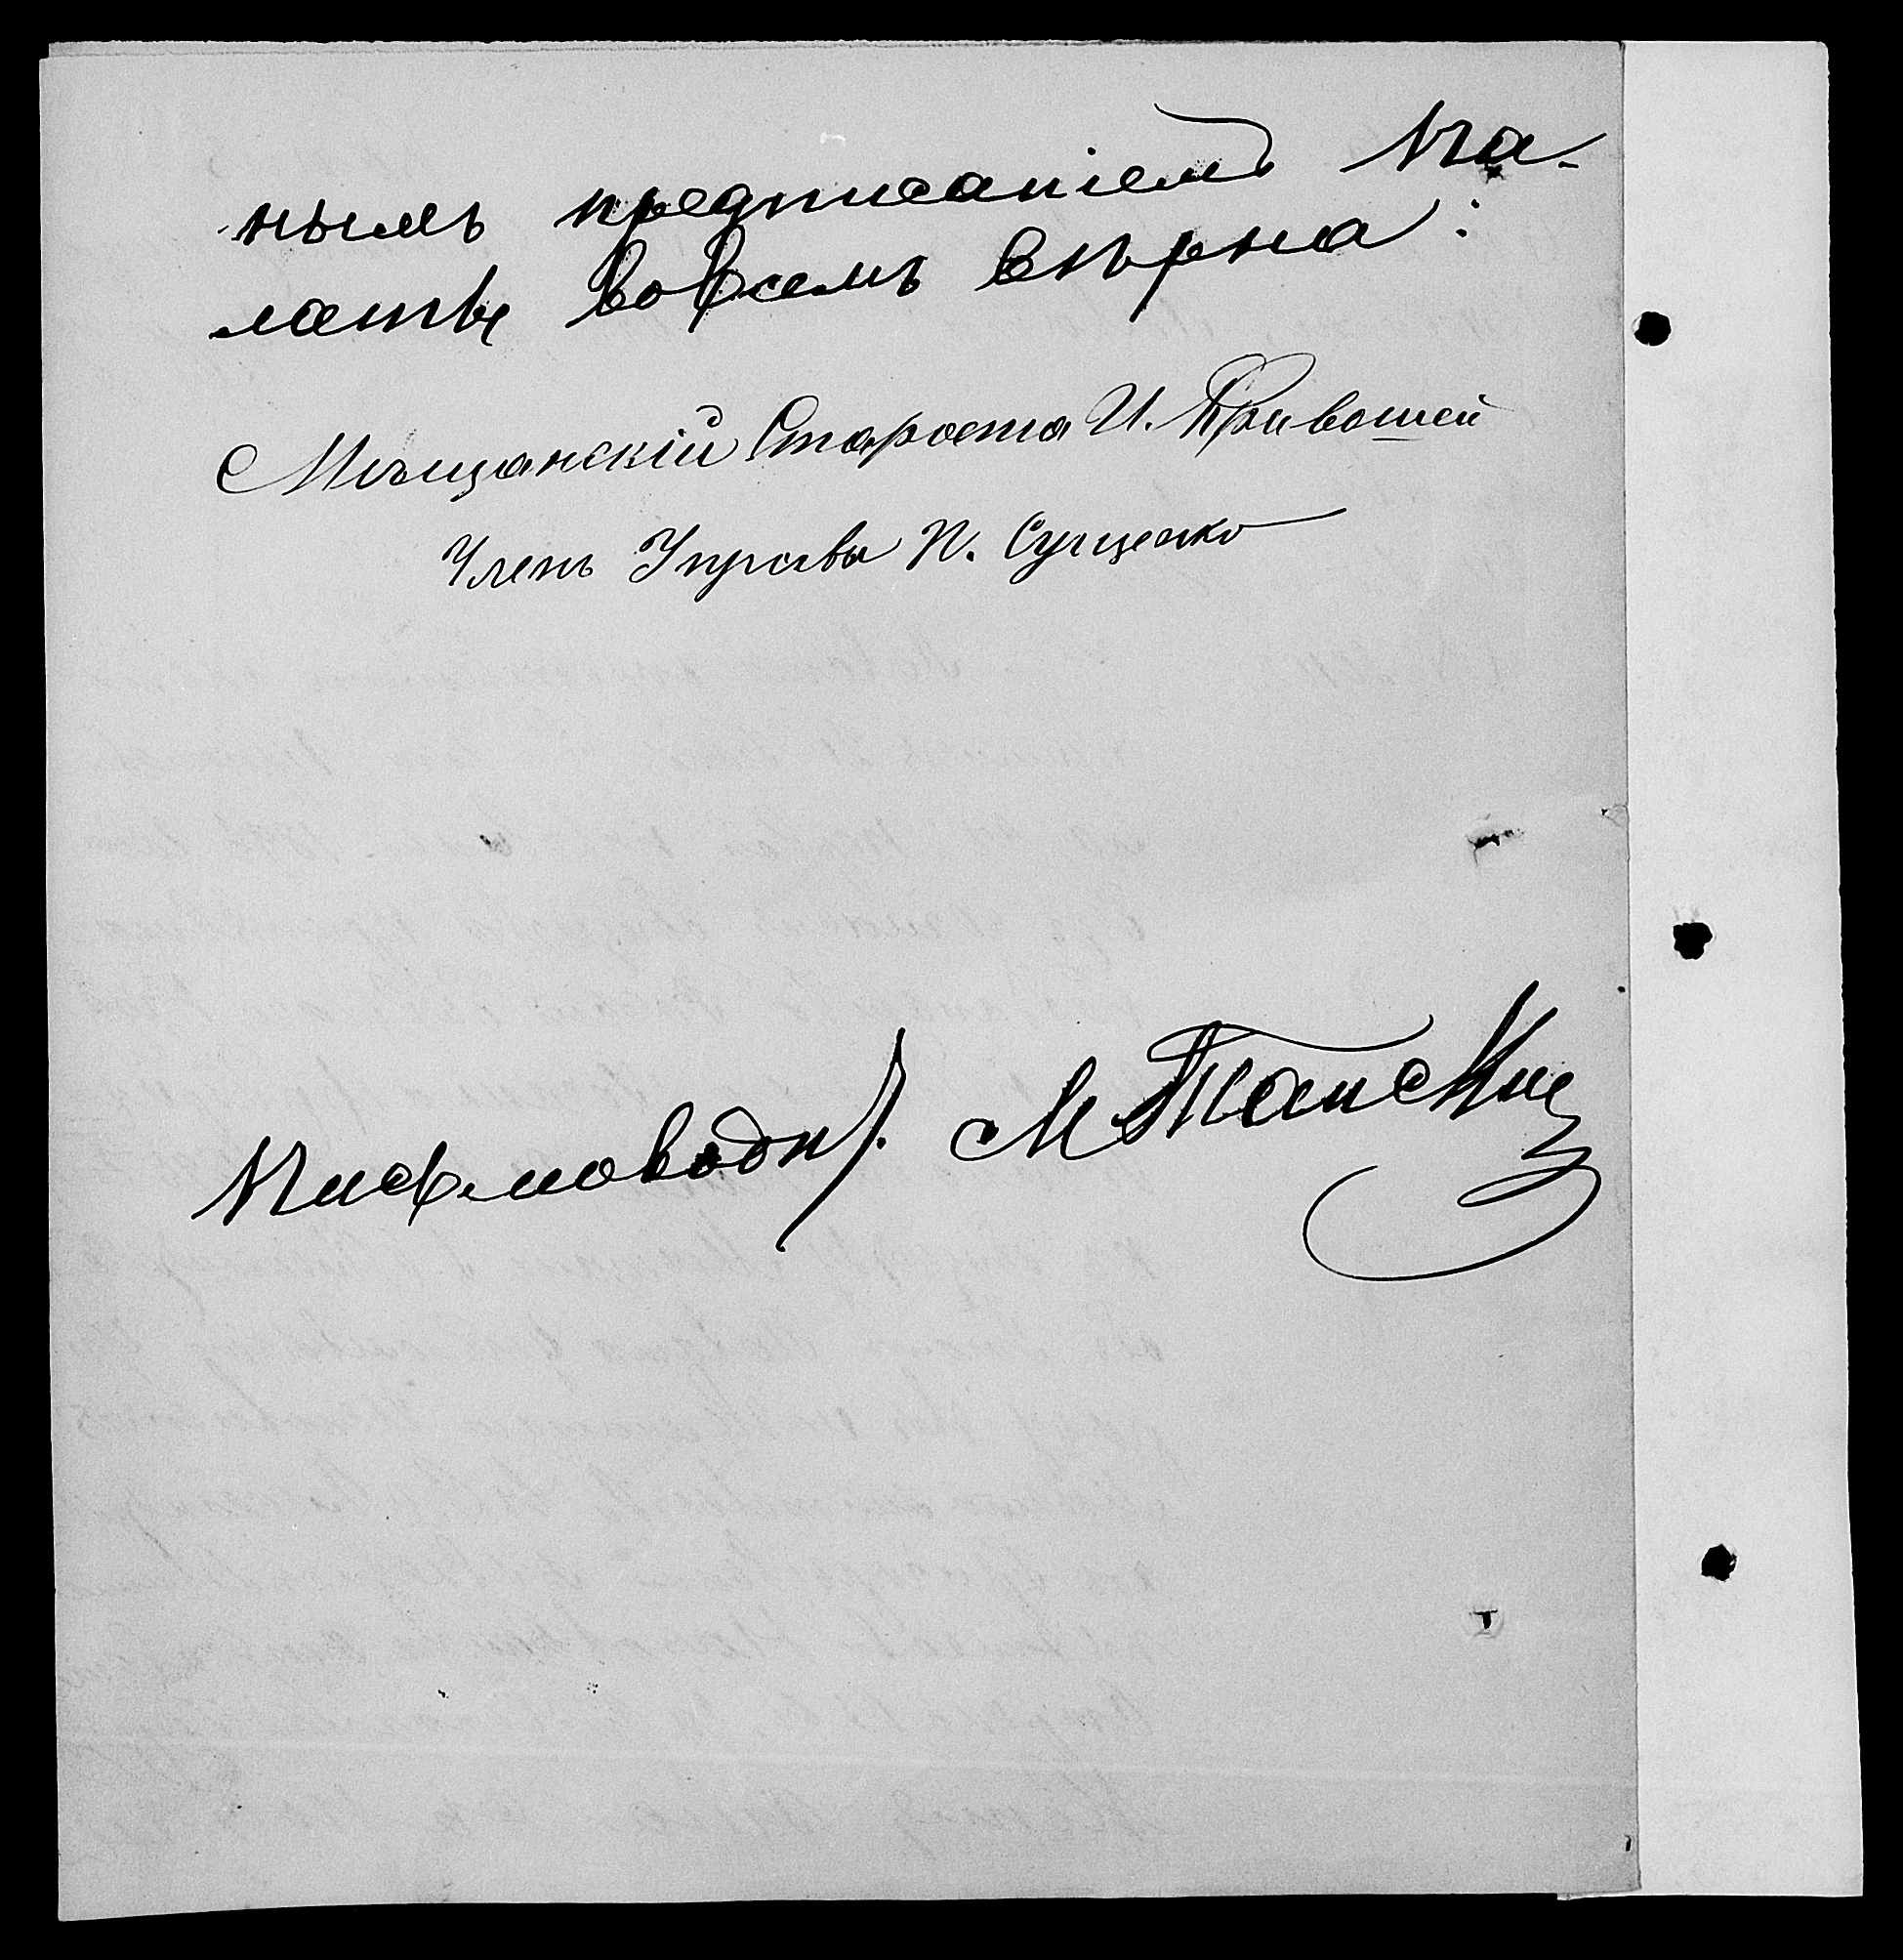 нымъ предписаніемъ Па-
латѣ вовсемъ вѣрна:
Мѣщанскій Староста И. Кривошей
Членъ Управы П. Сущенко
Письмоводит. М Танскій